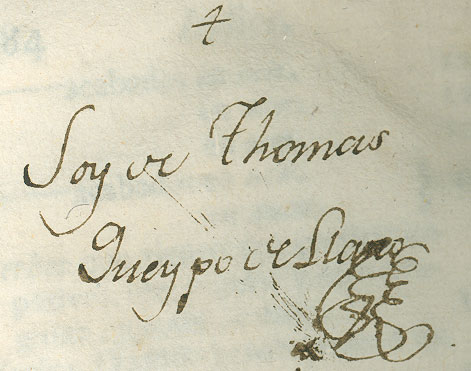 Soy de Thomas
Queypo de Llano